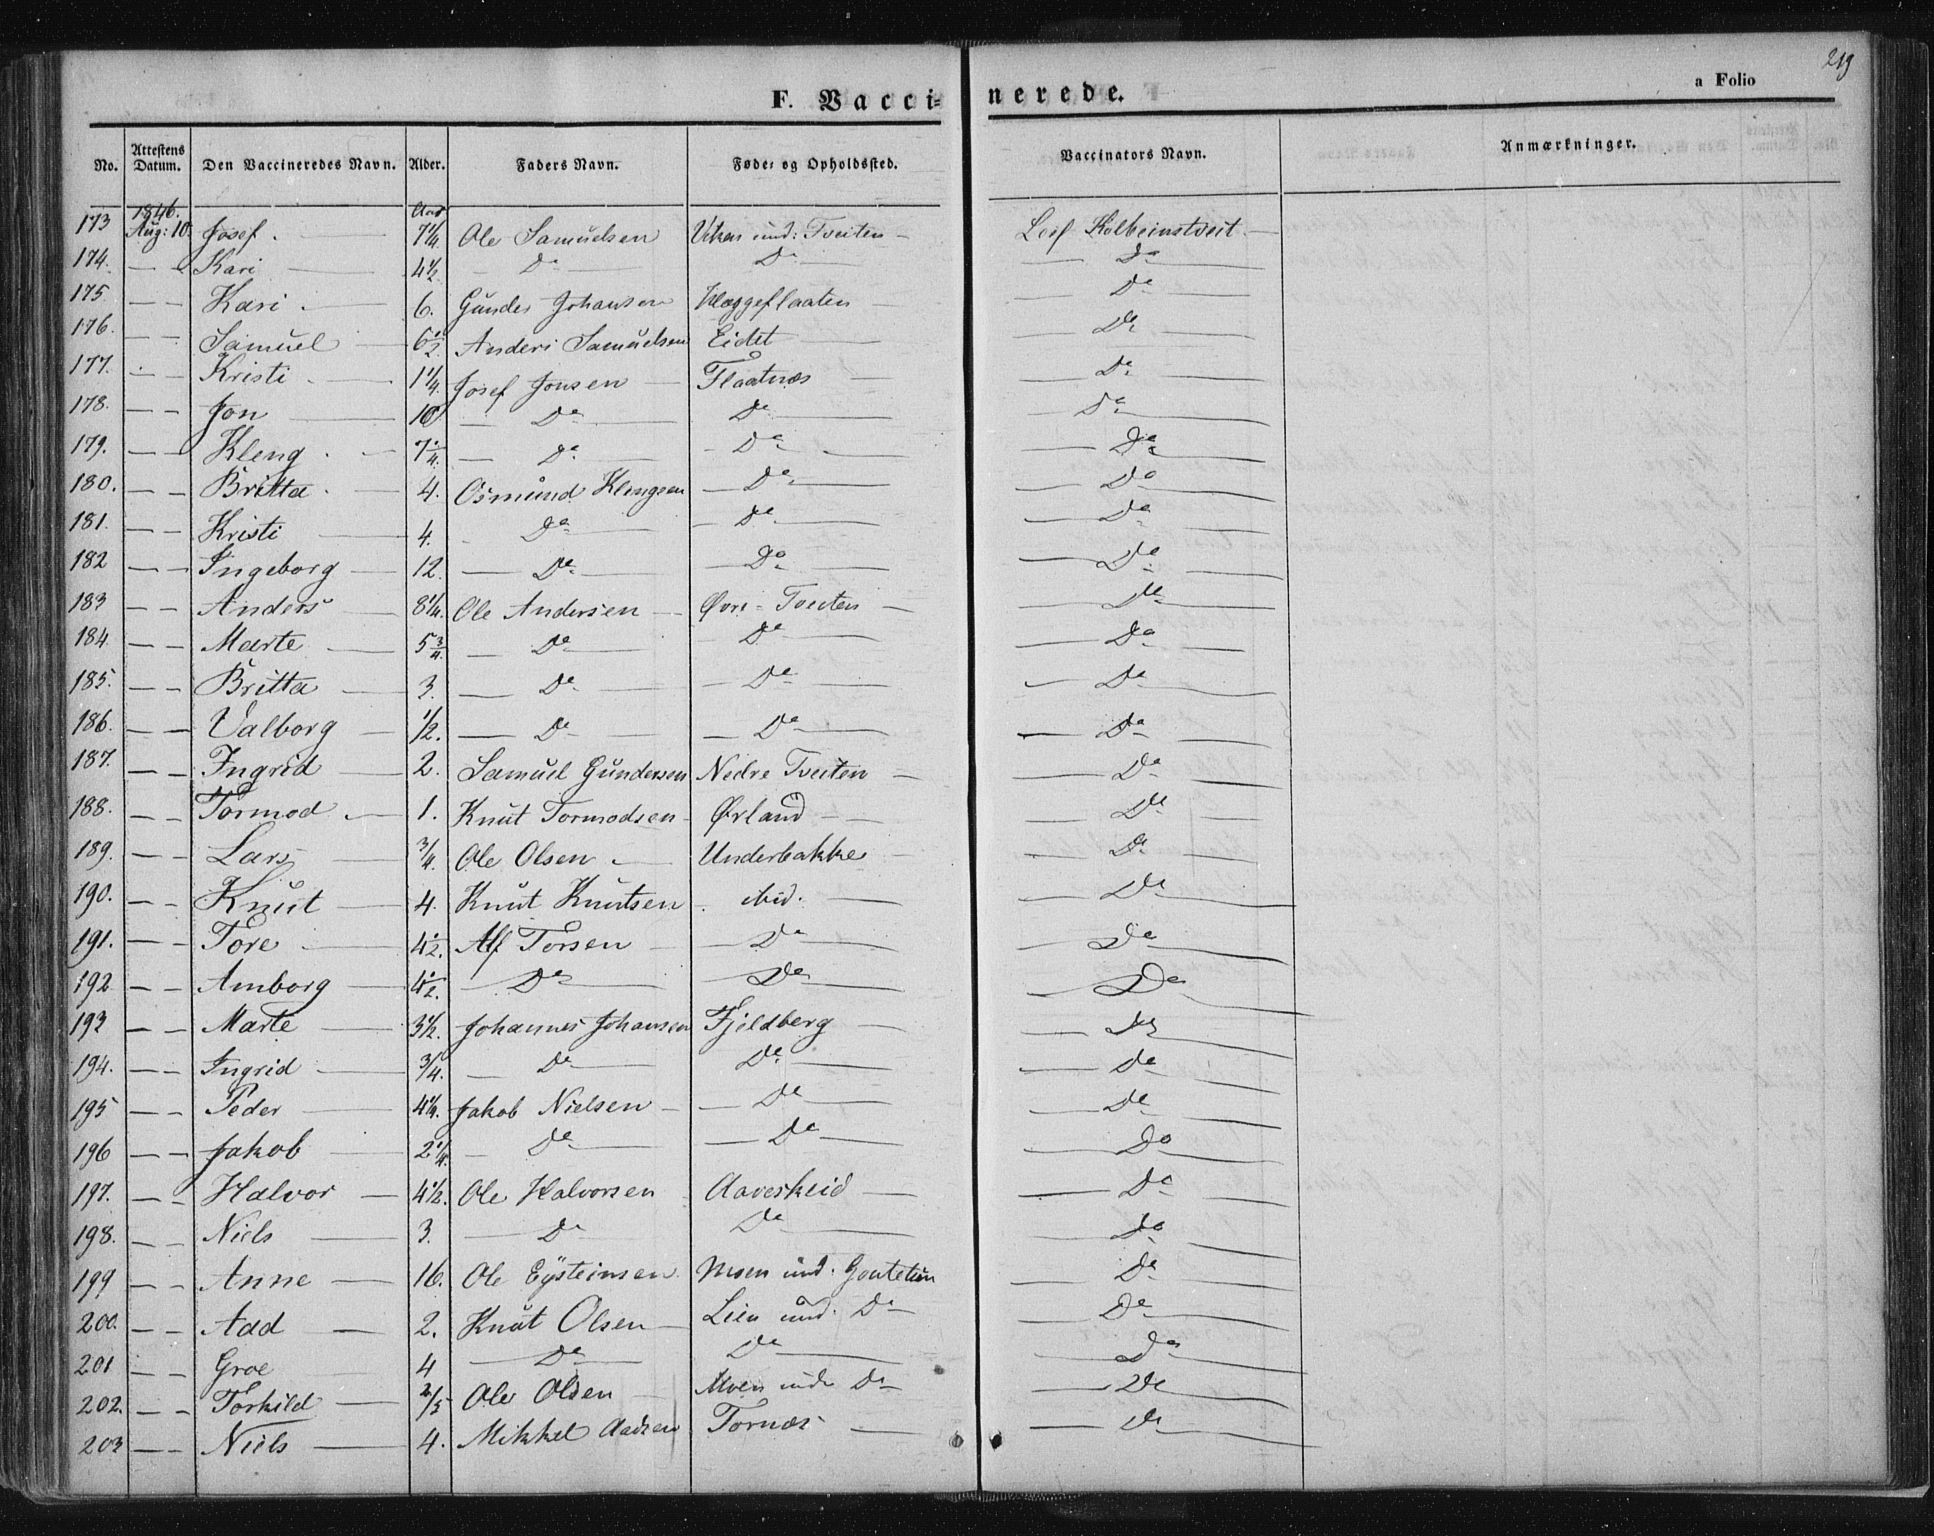 219
F. Vaccinerede.
a Folio
No. | Attestens Datum. | Den Vaccineredes Navn. | Alder. | Faders Navn. | Føde- og Opholdssted. | Vaccinators Navn. | Anmærkninger.
1846. Aar
173 Aug: 10. Josef. 7 1/4 Ole Samuelsen und: Tveiten — Leif Kolbeinstveit
174. — — Kari — 4 1/2 — Do — Do — Do
175 — — Kari 6. Gunder Johansen Klæggeflaaten — Do
176. — — Samuel — 6 1/2 Anders Samuelsen Eidet — Do
177. — — Kristi 1 1/4 Josef Jonsen — Flaatnæs — Do
178. — — Jon — 10 — Do — Do — Do
179. — — Kleng 7 1/4 — Do — Do — Do
180. — — Britta 4. Osmund Klengsen — Do — Do
181. — — Kristi — 4. — Do — Do — Do
182 — — Ingeborg — 12. — Do — Do — Do
183 — — Anders — 8 1/4 Ole Andersen — Øvre Tveiten — Do
184 — — Marte — 5 3/4 — Do — Do — Do
185. — — Britta — 3. — Do — Do — Do
186. — — Valborg — 1/2. — Do — Do — Do
187. — — Ingrid — 2. Samuel Gundersen Nedre Tveiten — Do
188. — — Tormod — 1. Knut Tormodsen Ørland — Do
189. — — Lars — 3/4 Ole Olsen — Underbakke — Do
190. — — Knut — 4. Knut Knutsen ibid. — Do
191. — — Tore — 4 1/2. Alf Torsen — Do — Do
192. — — Amborg — 4 1/2. — Do — Do — Do
193 — — Marte — 3 1/2. Johannes Johansen Fjeldberg — Do
194. — — Ingrid — 3/4. — Do — Do — Do
195 — — Peder — 4 1/4. Jakob Nielsen — Do — Do
196 — — Jakob — 2 1/4. — Do — Do — Do
197. — — Halvor — 4 1/2. Ole Halvorsen Aaverskeid — Do
198. — — Niels — 3. — Do — Do — Do
199 — — Anne — 16. Ole Eysteinsen Moen und. — Do
200. — — Aad — 2. Knut Olsen — Lien und. Do — Do
201 — — Groe 4 — Do — Do — Do
202. — — Torkild — 2/5 Ole Olsen — Moen und. Do — Do
203 — — Niels — 4. Mikkel Aadsen Tornæs — Do